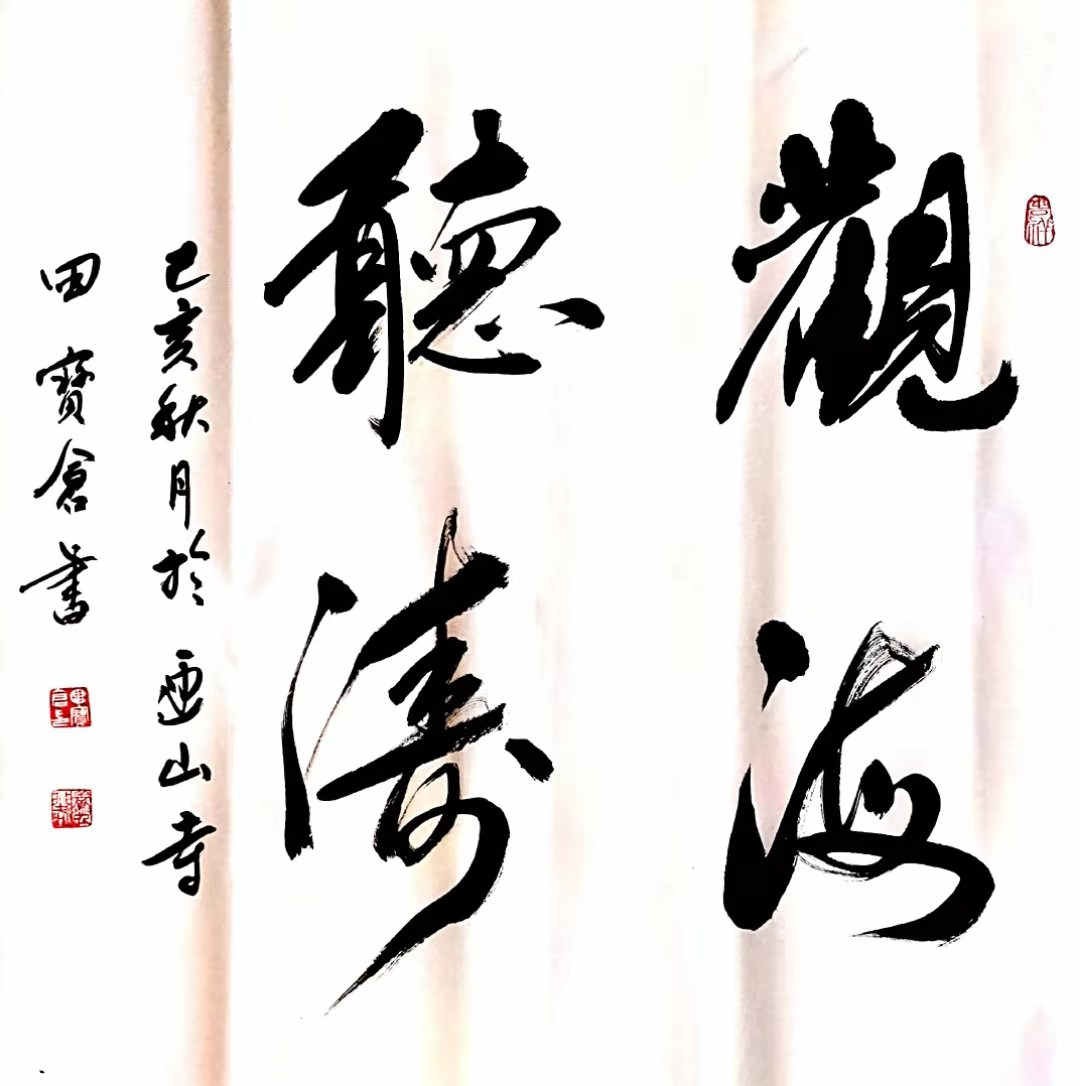 觀海
聽濤
己亥秋月於西山寺
田寶倉書